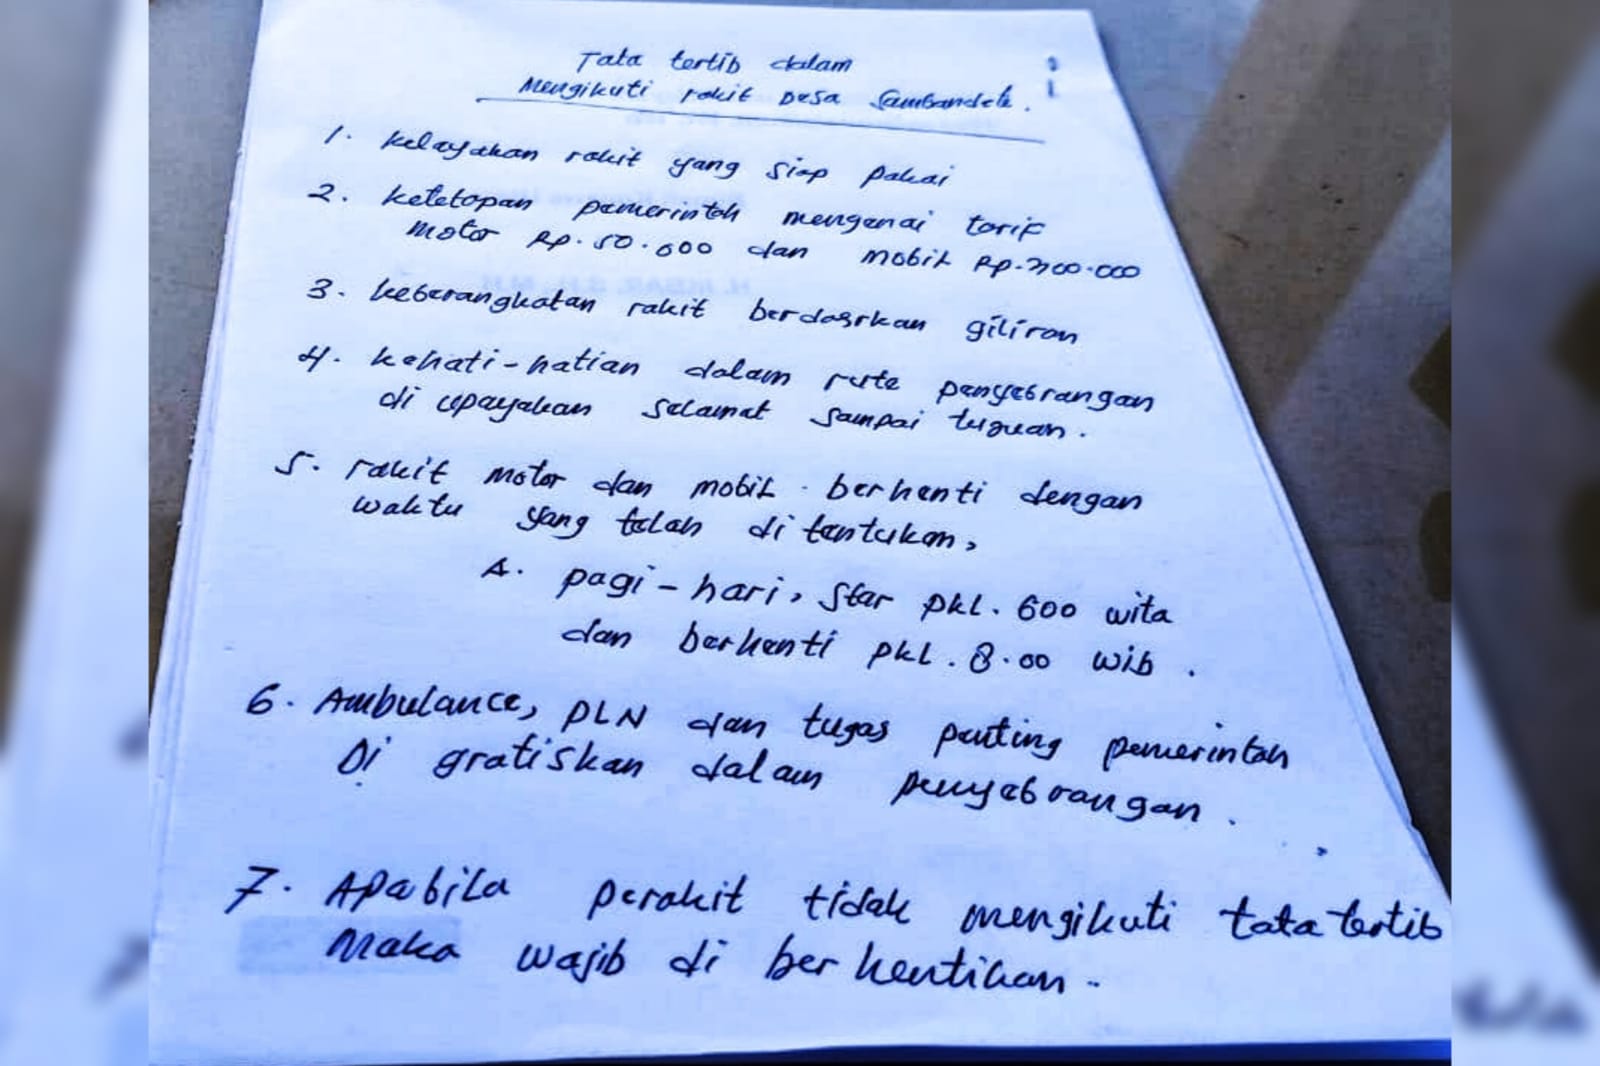 Tata tertib dalam
Mengikuti rakit Desa Sambandete.
1. kelayakan rakit yang siap pakai
2. ketetapan pemerintah mengenai tarif
motor Rp. 50.000 dan mobil
3. keberangkatan rakit berdasrkan giliran
4. kehati-hatian dalam rute penyebrangan
di upayakan selamat sampai tujuan.
5. rakit motor dan mobil berhenti dengan
waktu yang telah di tentukan,
A. pagi-hari, star pkl. 600 wita
dan berhenti pkl. 8.00 wib.
6. Ambulance, PLN dan tugas penting pemerintah
Di gratiskan dalam penyebrangan.
7. Apabila perakit tidak mengikuti tata tertib
Maka wajib di berhentikan.